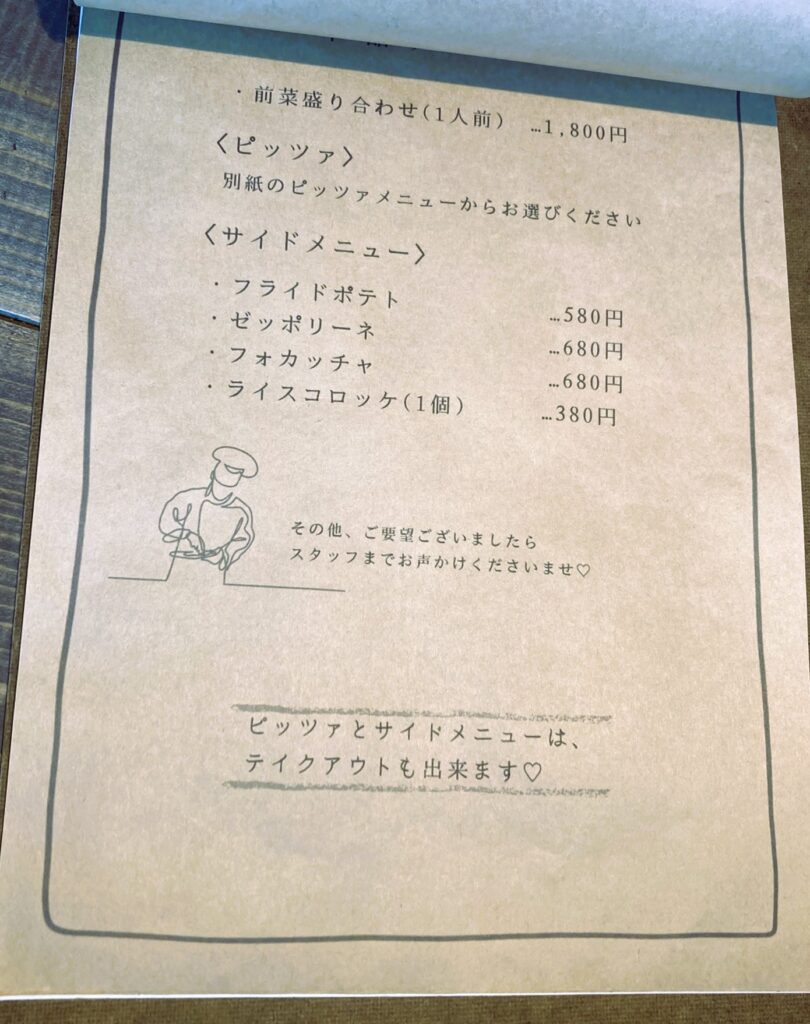 ・前菜盛り合わせ(1人前) …1,800円
〈ピッツァ〉
別紙のピッツァメニューからお選びください
〈サイドメニュー〉
・フライドポテト …580円
・ゼッポリーネ …680円
・フォカッチャ …680円
・ライスコロッケ(1個) …380円
その他、ご要望ございましたら
スタッフまでお声かけくださいませ♡
ピッツァとサイドメニューは、
テイクアウトも出来ます♡